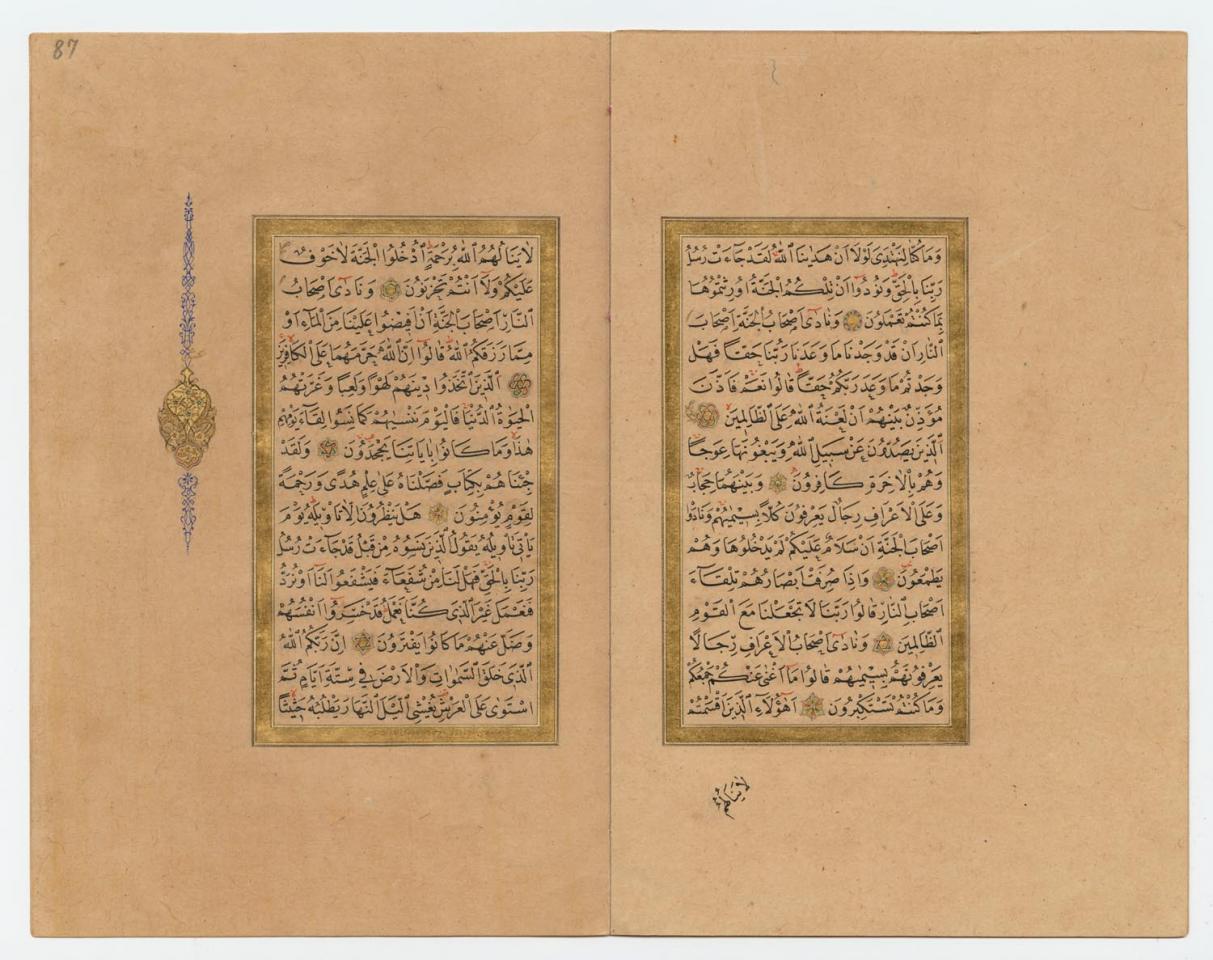 وَمَا كُنَّا لِنَهْتَدِىَ لَوْلَا اَنْ هَدٰينَا اللّٰهُ لَقَدْ جَاءَتْ رُسُلُ
رَبِّنَا بِالْحَقِّ وَنُودُوا اَنْ تِلْكُمُ الْجَنَّةُ اُورِثْتُمُوهَا
بِمَا كُنْتُمْ تَعْمَلُونَ وَنَادٰى اَصْحَابُ الْجَنَّةِ اَصْحَابَ
النَّارِ اَنْ قَدْ وَجَدْنَا مَا وَعَدَنَا رَبُّنَا حَقًّا فَهَلْ
وَجَدْتُمْ مَا وَعَدَ رَبُّكُمْ حَقًّا قَالُوا نَعَمْ فَاَذَّنَ
مُؤَذِّنٌ بَيْنَهُمْ اَنْ لَعْنَةُ اللّٰهِ عَلَى الظَّالِمِينَ
الَّذِينَ يَصُدُّونَ عَنْ سَبِيلِ اللّٰهِ وَيَبْغُونَهَا عِوَجًا
وَهُمْ بِالْاٰخِرَةِ كَافِرُونَ وَبَيْنَهُمَا حِجَابٌ
وَعَلَى الْاَعْرَافِ رِجَالٌ يَعْرِفُونَ كُلًّا بِسِيمٰيهُمْ وَنَادَوْا
اَصْحَابَ الْجَنَّةِ اَنْ سَلَامٌ عَلَيْكُمْ لَمْ يَدْخُلُوهَا وَهُمْ
يَطْمَعُونَ وَاِذَا صُرِفَتْ اَبْصَارُهُمْ تِلْقَاءَ
اَصْحَابِ النَّارِ قَالُوا رَبَّنَا لَا تَجْعَلْنَا مَعَ الْقَوْمِ
الظَّالِمِينَ وَنَادٰى اَصْحَابُ الْاَعْرَافِ رِجَالًا
يَعْرِفُونَهُمْ بِسِيمٰيهُمْ قَالُوا مَا اَغْنٰى عَنْكُمْ جَمْعُكُمْ
وَمَا كُنْتُمْ تَسْتَكْبِرُونَ اَهٰؤُلَاءِ الَّذِينَ اَقْسَمْتُمْ
لَا يَنَالُهُمُ
87
لَا يَنَالُهُمُ اللّٰهُ بِرَحْمَةٍ اُدْخُلُوا الْجَنَّةَ لَا خَوْفٌ
عَلَيْكُمْ وَلَا اَنْتُمْ تَحْزَنُونَ وَنَادٰى اَصْحَابُ
النَّارِ اَصْحَابَ الْجَنَّةِ اَنْ اَفِيضُوا عَلَيْنَا مِنَ الْمَاءِ اَوْ
مِمَّا رَزَقَكُمُ اللّٰهُ قَالُوا اِنَّ اللّٰهَ حَرَّمَهُمَا عَلَى الْكَافِرِينَ
الَّذِينَ اتَّخَذُوا دِينَهُمْ لَهْوًا وَلَعِبًا وَغَرَّتْهُمُ
الْحَيٰوةُ الدُّنْيَا فَالْيَوْمَ نَنْسٰيهُمْ كَمَا نَسُوا لِقَاءَ يَوْمِهِمْ
هٰذَا وَمَا كَانُوا بِاٰيَاتِنَا يَجْحَدُونَ وَلَقَدْ
جِئْنَاهُمْ بِكِتَابٍ فَصَّلْنَاهُ عَلٰى عِلْمٍ هُدًى وَرَحْمَةً
لِقَوْمٍ يُؤْمِنُونَ هَلْ يَنْظُرُونَ اِلَّا تَاْوِيلَهُ يَوْمَ
يَاْتِى تَاْوِيلُهُ يَقُولُ الَّذِينَ نَسُوهُ مِنْ قَبْلُ قَدْ جَاءَتْ رُسُلُ
رَبِّنَا بِالْحَقِّ فَهَلْ لَنَا مِنْ شُفَعَاءَ فَيَشْفَعُوا لَنَا اَوْ نُرَدُّ
فَنَعْمَلَ غَيْرَ الَّذِى كُنَّا نَعْمَلُ قَدْ خَسِرُوا اَنْفُسَهُمْ
وَضَلَّ عَنْهُمْ مَا كَانُوا يَفْتَرُونَ اِنَّ رَبَّكُمُ اللّٰهُ
الَّذِى خَلَقَ السَّمٰوَاتِ وَالْاَرْضَ فِى سِتَّةِ اَيَّامٍ ثُمَّ
اسْتَوٰى عَلَى الْعَرْشِ يُغْشِى الَّيْلَ النَّهَارَ يَطْلُبُهُ حَثِيثًا